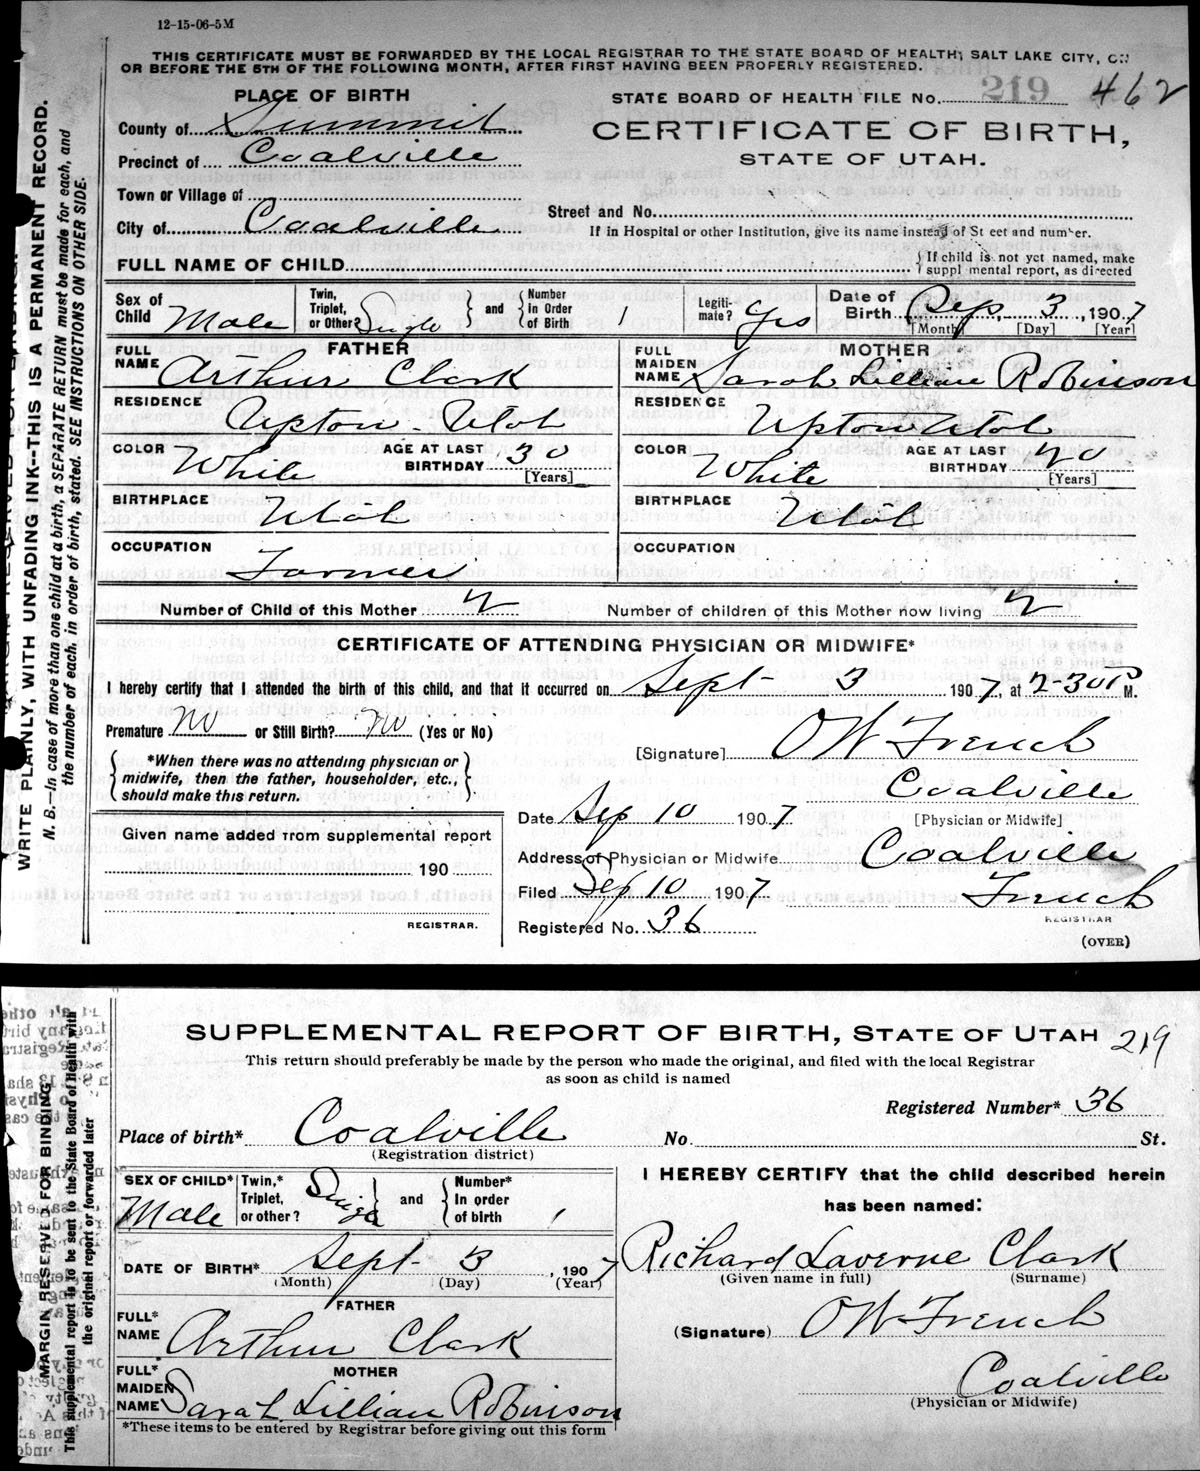 12-15-06-5M
THIS CERTIFICATE MUST BE FORWARDED BY THE LOCAL REGISTRAR TO THE STATE BOARD OF HEALTH, SALT LAKE CITY, ON
OR BEFORE THE 5TH OF THE FOLLOWING MONTH, AFTER FIRST HAVING BEEN PROPERLY REGISTERED.
PLACE OF BIRTH
STATE BOARD OF HEALTH FILE No. 219 462
County of Summit
CERTIFICATE OF BIRTH,
Precinct of Coalville
STATE OF UTAH.
Town or Village of
Street and No.
City of Coalville
If in Hospital or other Institution, give its name instead of St eet and number.
FULL NAME OF CHILD
If child is not yet named, make
suppl mental report, as directed
Sex of Child Male
Twin, Triplet, or Other? Single and Number In Order of Birth 1
Legiti-mate? Yes
Date of Birth Sep, 3, 1907
[Month] [Day] [Year]
FATHER
MOTHER
FULL NAME Arthur Clark
FULL MAIDEN NAME Sarah Lillian Robinson
RESIDENCE Upton - Utah
RESIDENCE Upton Utah
COLOR White AGE AT LAST BIRTHDAY 30 [Years]
COLOR White AGE AT LAST BIRTHDAY 20 [Years]
BIRTHPLACE Utah
BIRTHPLACE Utah
OCCUPATION Farmer
OCCUPATION
Number of Child of this Mother 2
Number of children of this Mother now living 2
CERTIFICATE OF ATTENDING PHYSICIAN OR MIDWIFE*
I hereby certify that I attended the birth of this child, and that it occurred on Sept - 3 1907, at 2-30 P M.
Premature No or Still Birth? No (Yes or No)
[Signature] O W French
*When there was no attending physician or
midwife, then the father, householder, etc.,
should make this return.
Coalville
[Physician or Midwife]
Date Sep 10 1907
Given name added from supplemental report
190
REGISTRAR.
Address of Physician or Midwife Coalville
Filed Sep 10 1907 French
REGISTRAR
Registered No. 36
(OVER)
MARGIN RESERVED FOR BINDING.
WRITE PLAINLY, WITH UNFADING INK--THIS IS A PERMANENT RECORD.
N. B.—In case of more than one child at a birth, a SEPARATE RETURN must be made for each, and
the number of each, in order of birth, stated. SEE INSTRUCTIONS ON OTHER SIDE.
SUPPLEMENTAL REPORT OF BIRTH, STATE OF UTAH 219
This return should preferably be made by the person who made the original, and filed with the local Registrar
as soon as child is named
Registered Number* 36
Place of birth* Coalville
(Registration district)
No. St.
SEX OF CHILD* Male
Twin,* Triplet, or other? Single and Number* In order of birth 1
I HEREBY CERTIFY that the child described herein
has been named:
DATE OF BIRTH* Sept - 3, 1907
(Month) (Day) (Year)
Richard Laverne Clark
(Given name in full) (Surname)
FATHER
FULL* NAME Arthur Clark
(Signature) O W French
MOTHER
FULL* MAIDEN NAME Sarah Lillian Robinson
Coalville
(Physician or Midwife)
*These items to be entered by Registrar before giving out this form
MARGIN RESERVED FOR BINDING
This Supplemental report is to be sent to the State Board of Health with
the original report or forwarded later